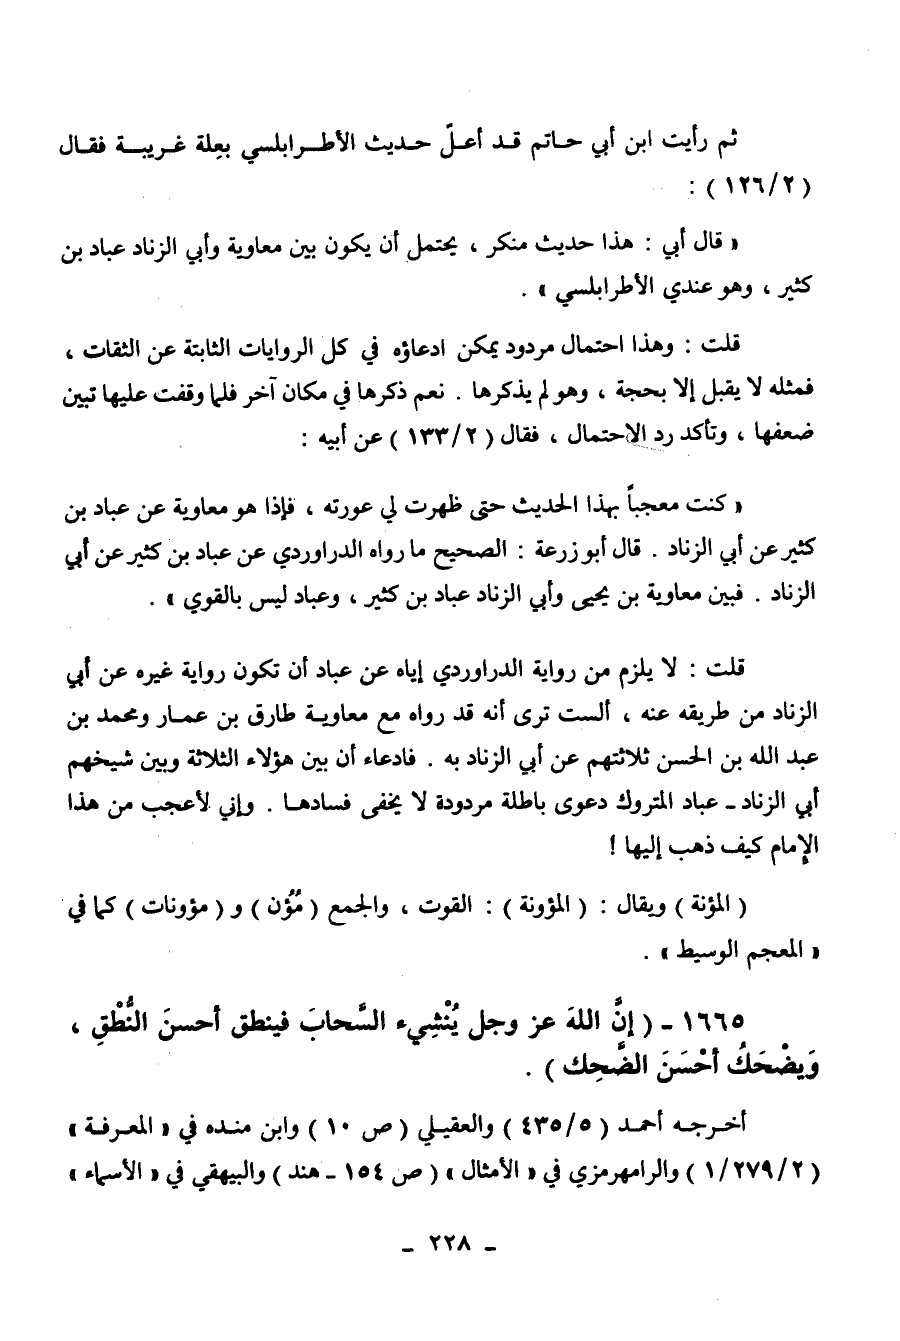 ثم رأيت ابن أبي حاتم قد أعلّ حديث الأطرابلسي بعِلة غريبة فقال
( ٢/١٢٦ ) :
« قال أبي : هذا حديث منكر ، يحتمل أن يكون بين معاوية وأبي الزناد عباد بن
كثير ، وهو عندي الأطرابلسي » .
قلت : وهذا احتمال مردود يمكن ادعاؤه في كل الروايات الثابتة عن الثقات ،
فمثله لا يقبل إلا بحجة ، وهو لم يذكرها . نعم ذكرها في مكان آخر فلما وقفت عليها تبين
ضعفها ، وتأكد رد الاحتمال ، فقال ( ٢/١٣٣ ) عن أبيه :
« كنت معجباً بهذا الحديث حتى ظهرت لي عورته ، فإذا هو معاوية عن عباد بن
كثير عن أبي الزناد . قال أبو زرعة : الصحيح ما رواه الدراوردي عن عباد بن كثير عن أبي
الزناد . فبين معاوية بن يحيى وأبي الزناد عباد بن كثير ، وعباد ليس بالقوي » .
قلت : لا يلزم من رواية الدراوردي إياه عن عباد أن تكون رواية غيره عن أبي
الزناد من طريقه عنه ، ألست ترى أنه قد رواه مع معاوية طارق بن عمار ومحمد بن
عبد الله بن الحسن ثلاثتهم عن أبي الزناد به . فادعاء أن بين هؤلاء الثلاثة وبين شيخهم
أبي الزناد ـ عباد المتروك دعوى باطلة مردودة لا يخفى فسادها . وإني لأعجب من هذا
الإمام كيف ذهب إليها !
( المؤنة ) ويقال : ( المؤونة ) : القوت ، والجمع ( مُؤَن ) و ( مؤونات ) كما في
« المعجم الوسيط » .
١٦٦٥ ـ ( إنَّ اللهَ عز وجل يُنْشِيء السَّحابَ فينطق أحسنَ النُّطْقِ ،
وَيضْحَكُ أحْسَنَ الضَّحِك ) .
أخرجه أحمد ( ٥/٤٣٥ ) والعقيلي ( ص ١٠ ) وابن منده في « المعرفة »
( ٢/٢٧٩/١ ) والرامهرمزي في « الأمثال » ( ص ١٥٤ ـ هند ) والبيهقي في « الأسماء »
ـ ٢٢٨ ـ